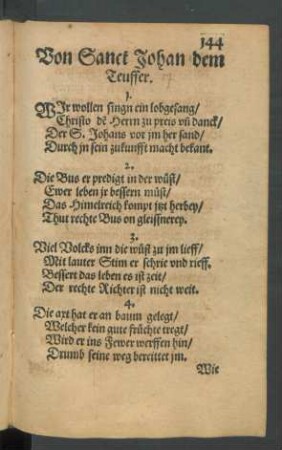 144
Von Sanct Johan dem
Teuffer.
1.
WJr wollen singn ein lobgesang/
Christo dē Herrn zu preis vñ danck/
Der S. Johans vor jm her sand/
Durch jn sein zukunfft macht bekant.
2.
Die Bus er predigt in der wüst/
Ewer leben jr bessern müst/
Das Himelreich kompt jtzt herbey/
Thut rechte Bus on gleissnerey.
3.
Viel Volcks inn die wüst zu jm lieff/
Mit lauter Stim er schrie vnd rieff.
Bessert das leben es ist zeit/
Der rechte Richter ist nicht weit.
4.
Die axt hat er an baum gelegt/
Welcher kein gute früchte tregt/
Wird er ins Fewer werffen hin/
Drumb seine weg bereittet jm.
Wie